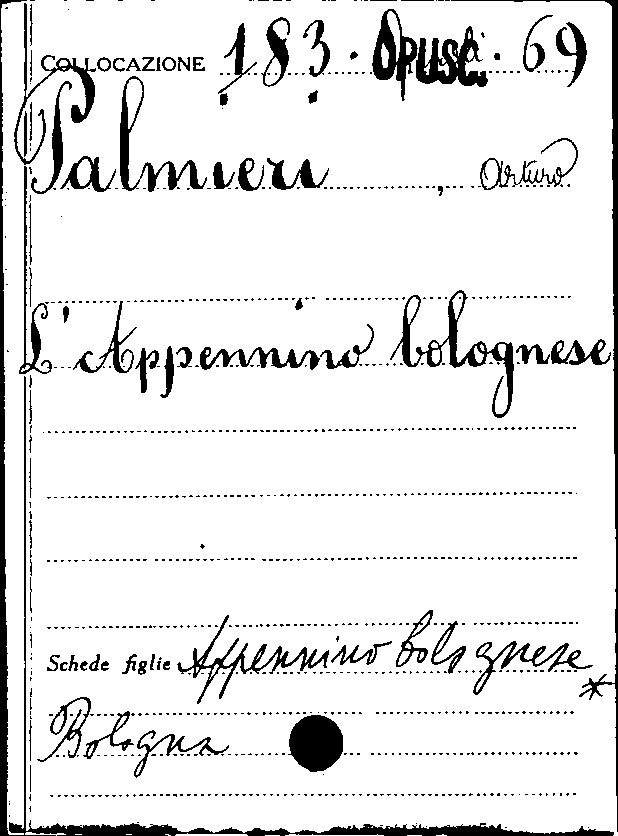 COLLOCAZIONE 183. OPUSC. 69
Palmieri, Arturo
L'Appennino bolognese
Schede figlie Appennino bolognese *
Bologna